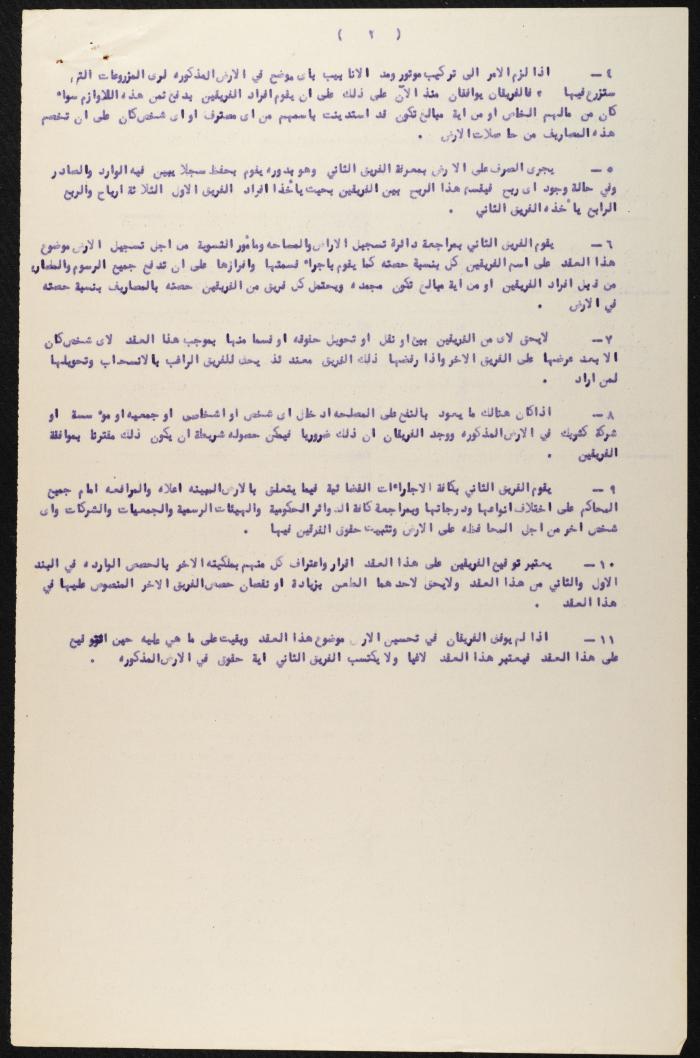 ( ٢ )
٤ — اذا لزم الامر الى تركيب موتور ومد الانا بيب باى موضع في الارض المذكوره لرى المزروعات التي
ستزرع فيها ، فالفريقان يوافقان منذ الآن على ذلك على ان يقوم افراد الفريقين بدفع ثمن هذه اللاوازم سواء
كان من مالهم الخاص او من اية مبالغ تكون قد استدينت باسمهم من اى مصترف او اى شخص كان على ان تخصم
هذه المصاريف من حاصلات الارض .
٥ — يجرى الصرف على الارض بمعرفة الفريق الثاني وهو بدوره يقوم بحفظ سجلا يبين فيه الوارد والصادر
وفي حالة وجود اى ربح فيقسم هذا الربح بين الفريقين بحيث يأخذا افراد الفريق الاول الثلاثة ارباح والربع
الرابع يأخذه الفريق الثاني .
٦ — يقوم الفريق الثاني بمراجعة دائرة تسجيل الاراض والمساحه ومأمور التسوية من اجل تسجيل الارض موضوع
هذا العقد على اسم الفريقين كل بنسبة حصته كما يقوم باجراء قسمتها وافرازها على ان تدفع جميع الرسوم والمصار
من قبل افراد الفريقين او من اية مبالغ تكون مجمده ويحتمل كل فريق من الفريقين حصته بالمصاريف بنسبة حصته
في الارض .
٧ — لايحق لاى من الفريقين بيع او نقل او تحويل حقوقه او قسما منها بموجب هذا العقد لاى شخص كان
الا بعد عرضها على الفريق الاخر واذا رفضها ذلك الفريق معند ئذ يحق للفريق الراغب بالانسحاب وتحويلها
لمن اراد .
٨ — اذا كان هنالك ما يعود بالنفع على المصلحه ادخال اى شخص او اشخاص او جمعيه او مؤسسة او
شركة كشريك في الارض المذكوره ووجد الفريقان ان ذلك ضروريا فيمكن حصوله شريطة ان يكون ذلك مقترنا بموافقة
الفريقين .
٩ — يقوم الفريق الثاني بكافة الاجراءات القضائية فيما يتعلق بالارض المبينه اعلاه والمرافعه امام جميع
المحاكم على اختلاف انواعها ودرجاتها وبمراجعة كافة الدوائر الحكومية والهيئات الرسمية والجمعيات والشركات واى
شخص اخر من اجل المحافظه على الارض وتثبيت حقوق الفرقين فيها .
١٠ — يعتبر توقيع الفريقين على هذا العقد اقرار واعتراف كل منهم بملكيته الاخر بالحصص الوارده في البند
الاول والثاني من هذا العقد ولايحق لاحدهما الطعن بزيادة او نقصان حصص الفريق الاخر المنصوص عليها في
هذا العقد .
١١ — اذا لم يوفق الفريقان في تحسين الارض موضوع هذا العقد وبقيت على ما هي عليه حين التوقيع
على هذا العقد فيعتبر هذا العقد لاغيا ولا يكتسب الفريق الثاني اية حقوق في الارض المذكوره .